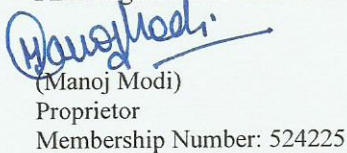 ManojModi.
(Manoj Modi)
Proprietor
Membership Number: 524225